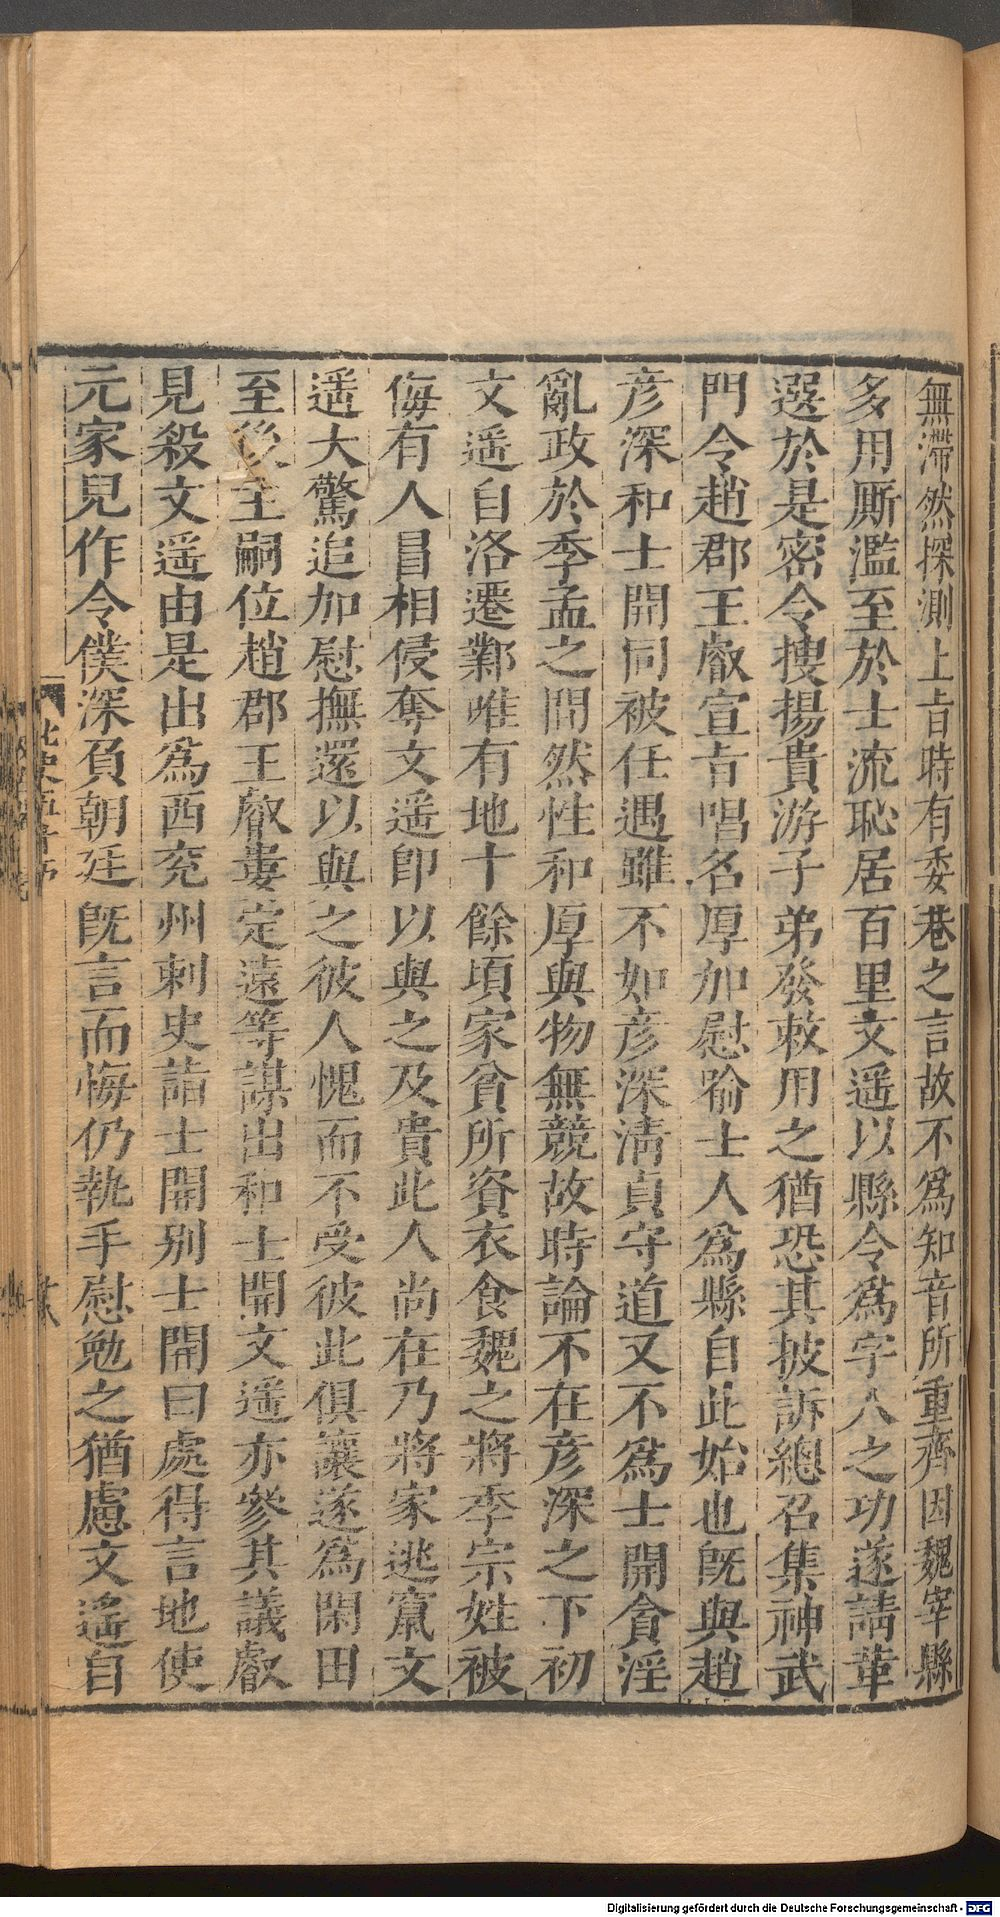 無滯然探測上旨時有委巷之言故不爲知音所重齊因魏宰縣
多用厮濫至於士流恥居百里文遥以縣令爲字人之功遂請革
選於是密令搜揚貴游子弟發敕用之猶恐其披訴總召集神武
門令趙郡王叡宣旨唱名厚加慰喻士人爲縣自此始也旣與趙
彦深和士開同被任遇雖不如彦深淸貞守道又不爲士開貪淫
亂政於季孟之間然性和厚與物無競故時論不在彦深之下初
文遥自洛遷鄴唯有地十餘頃家貧所資衣食魏之將季宗姓被
侮有人冒相侵奪文遥卽以與之及貴此人尚在乃將家逃竄文
遥大驚追加慰撫還以與之彼人愧而不受彼此俱讓遂爲閑田
至後主嗣位趙郡王叡婁定遠等謀出和士開文遥亦參其議叡
見殺文遥由是出爲西兖州刺史詣士開别士開曰處得言地使
元家兒作令僕深負朝廷旣言而悔仍執手慰勉之猶慮文遥自
北史五十五
Digitalisierung gefördert durch die Deutsche Forschungsgemeinschaft - DFG